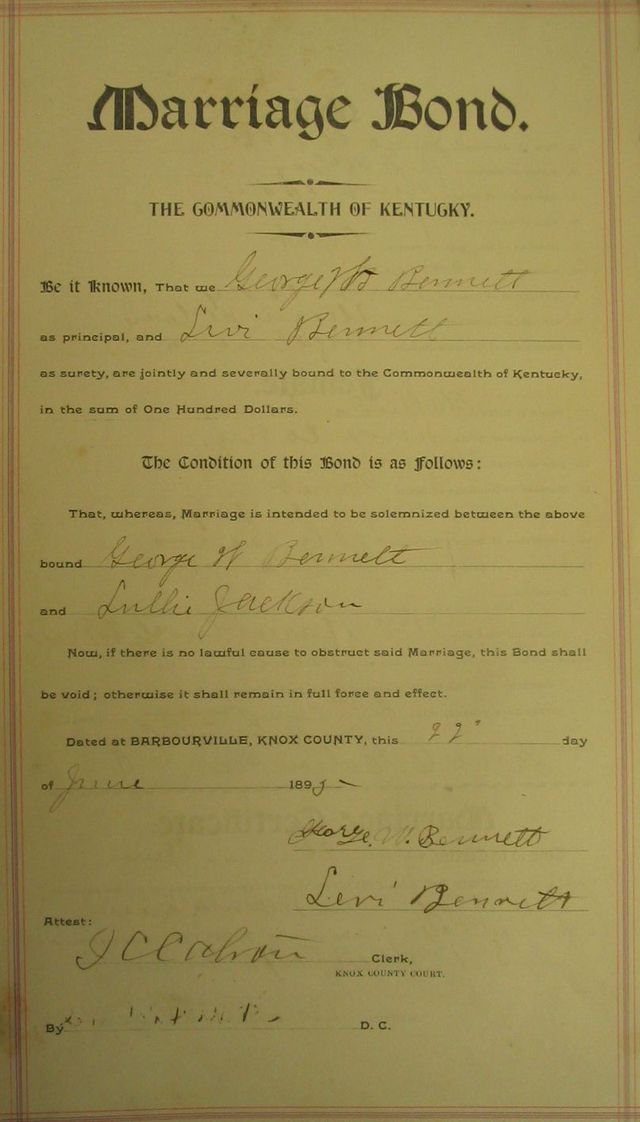 Marriage Bond.
THE COMMONWEALTH OF KENTUCKY.
Be it Known, That we George W Bennett
as principal, and Levi Bennett
as surety, are jointly and severally bound to the Commonwealth of Kentucky,
in the sum of One Hundred Dollars.
The Condition of this Bond is as Follows:
That, whereas, Marriage is intended to be solemnized between the above
bound George W Bennett
and Lullie Jackson
Now, if there is no lawful cause to obstruct said Marriage, this Bond shall
be void; otherwise it shall remain in full force and effect.
Dated at BARBOURVILLE, KNOX COUNTY, this 22" day
of June 189
George. W. Bennett
Levi Bennett
Attest:
Clerk,
KNOX COUNTY COURT.
By D. C.